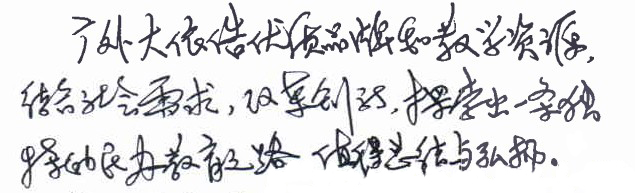 广外大依借优质品牌和教学资源，
结合社会需求，改革创新，探索出一条独
特的民办教育之路 值得总结与弘扬。